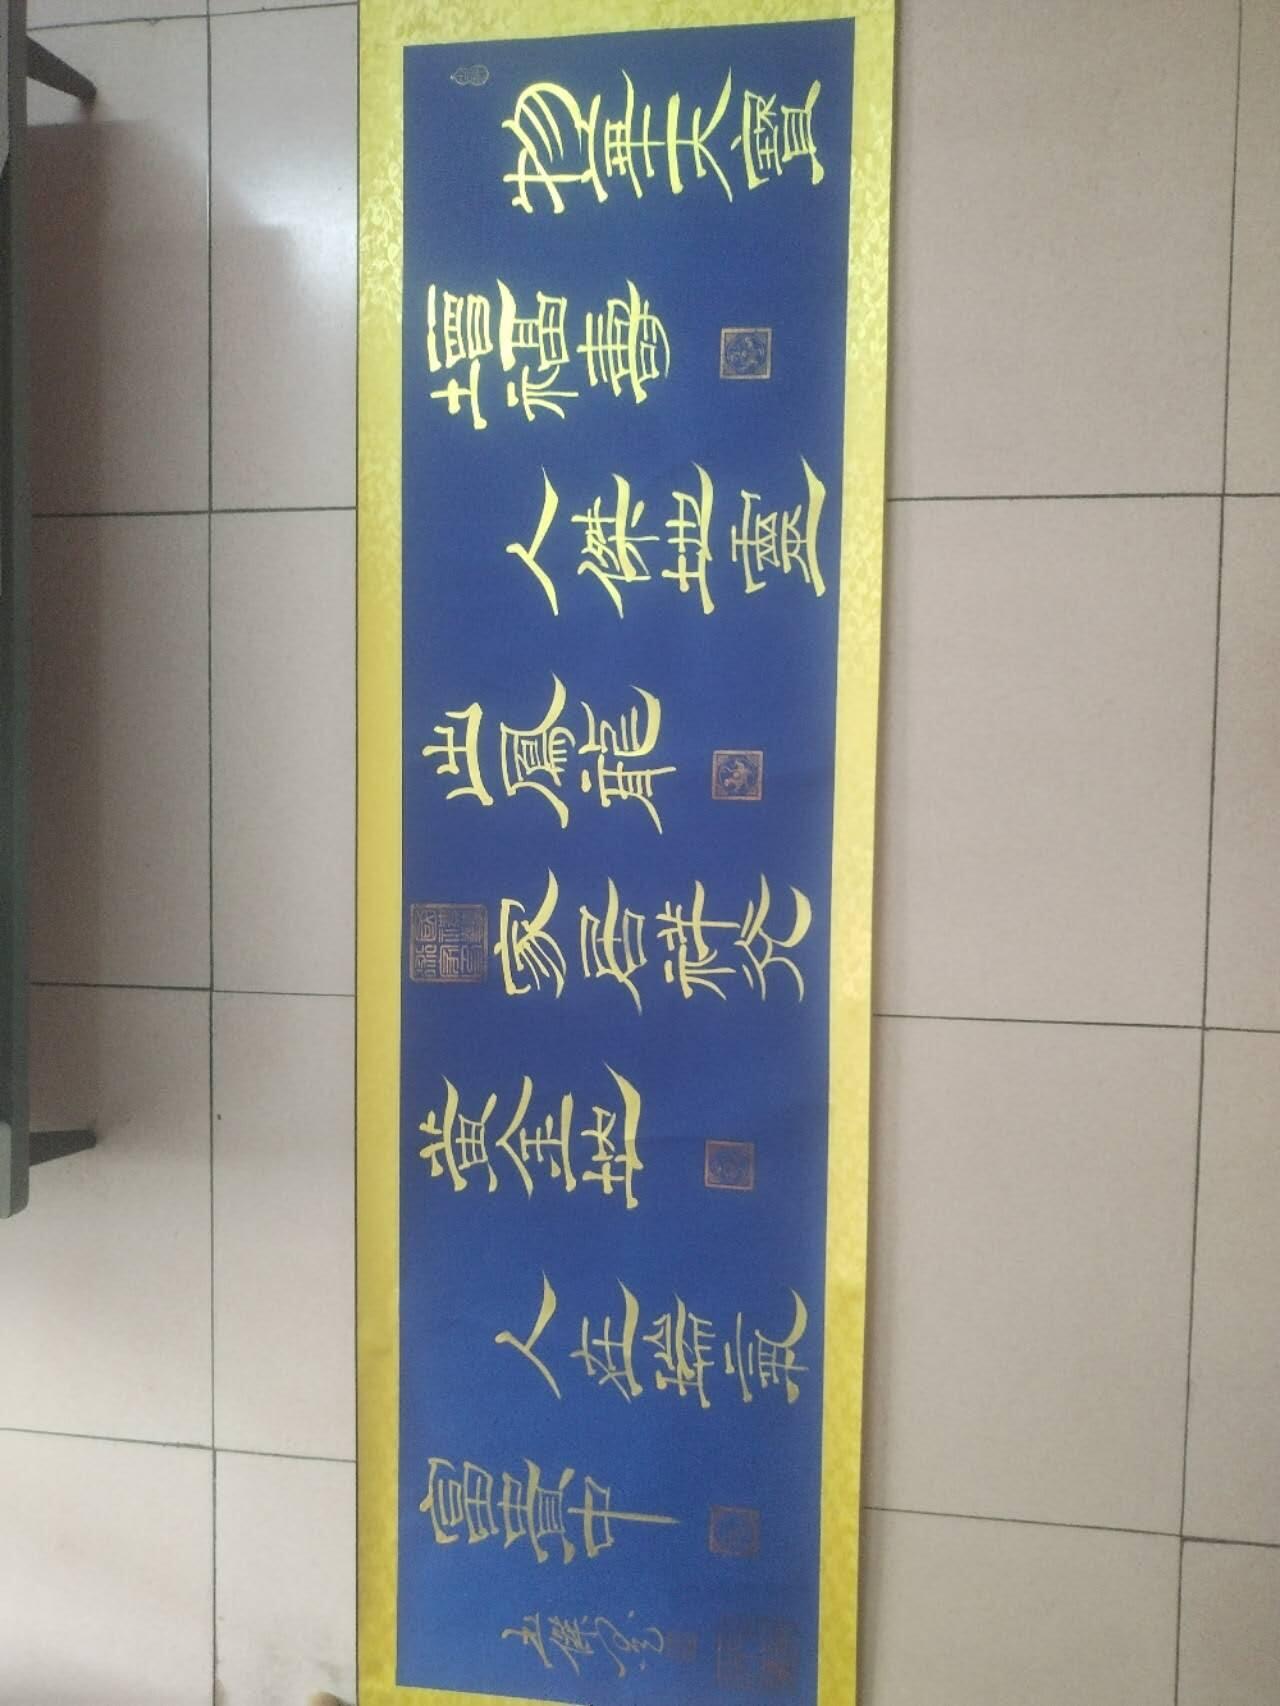 物華天寶
增福壽
人傑地靈
出鳳龍
家居祥光
黃金地
人在瑞氣
富貴中